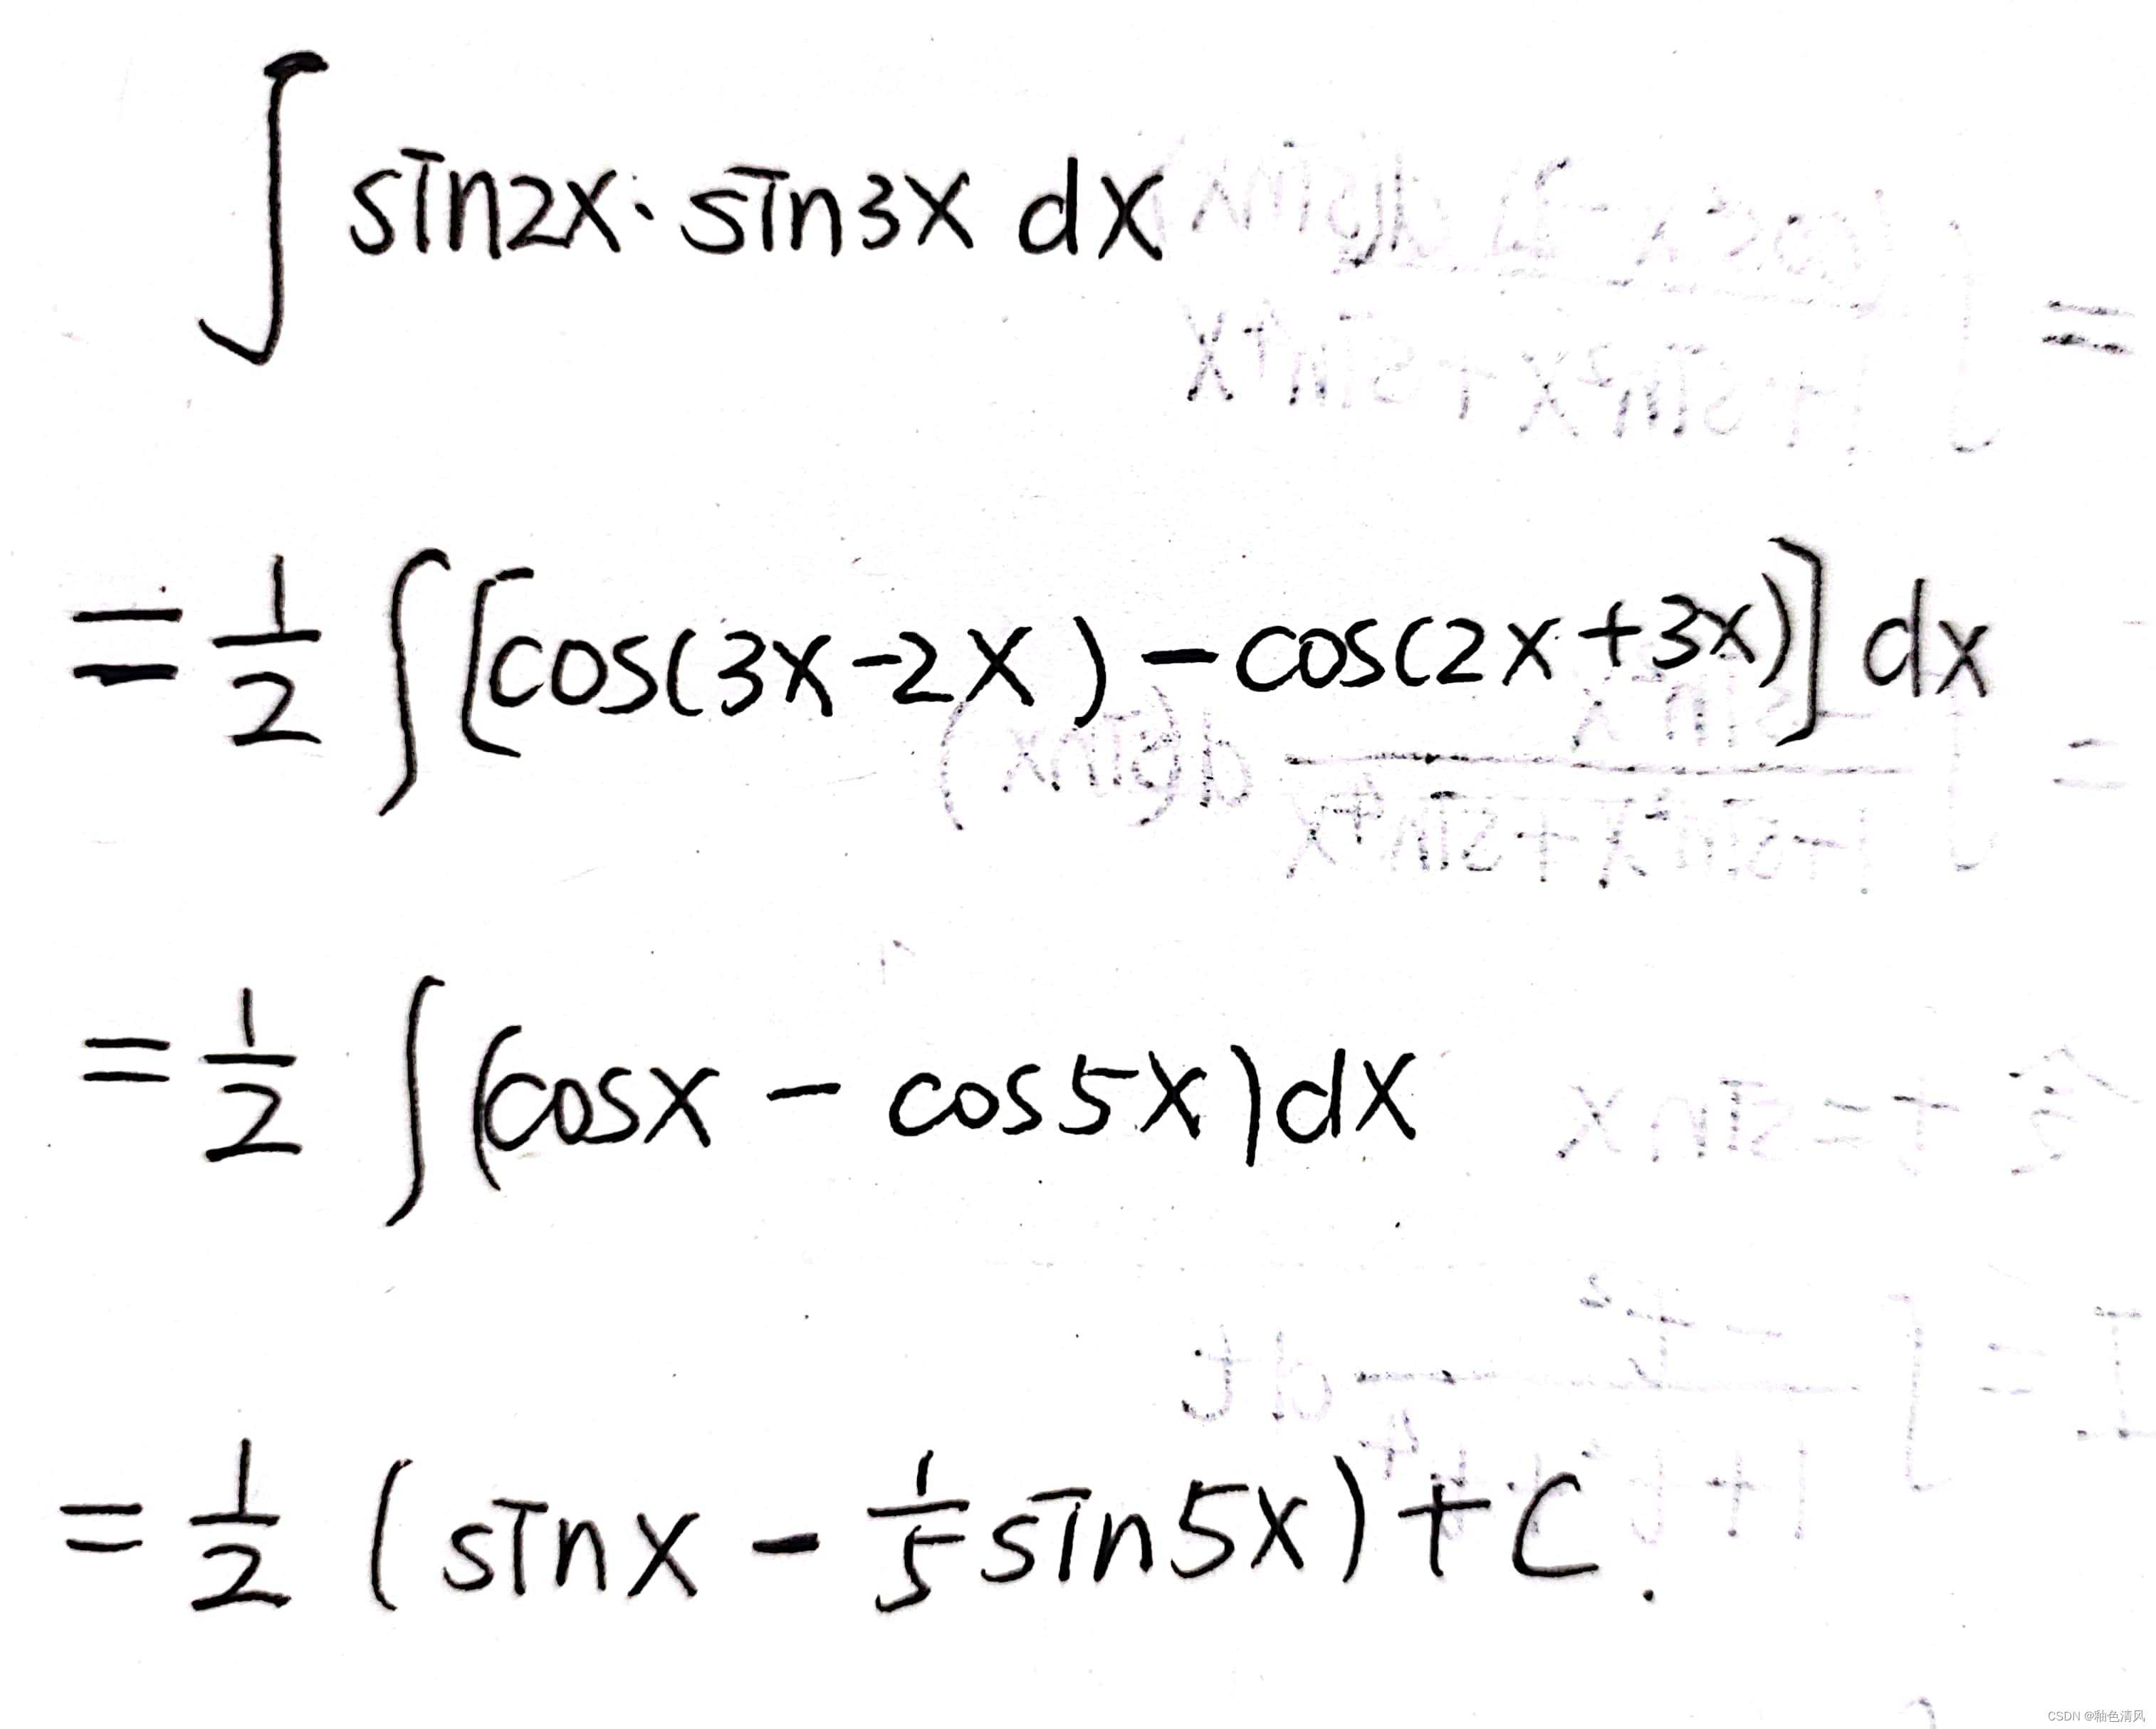 ∫ sin2x · sin3x dx
= 1/2 ∫ [cos(3x-2x) - cos(2x+3x)] dx
= 1/2 ∫ (cosx - cos5x) dx
= 1/2 (sinx - 1/5 sin5x) + C.
CSDN @釉色清风